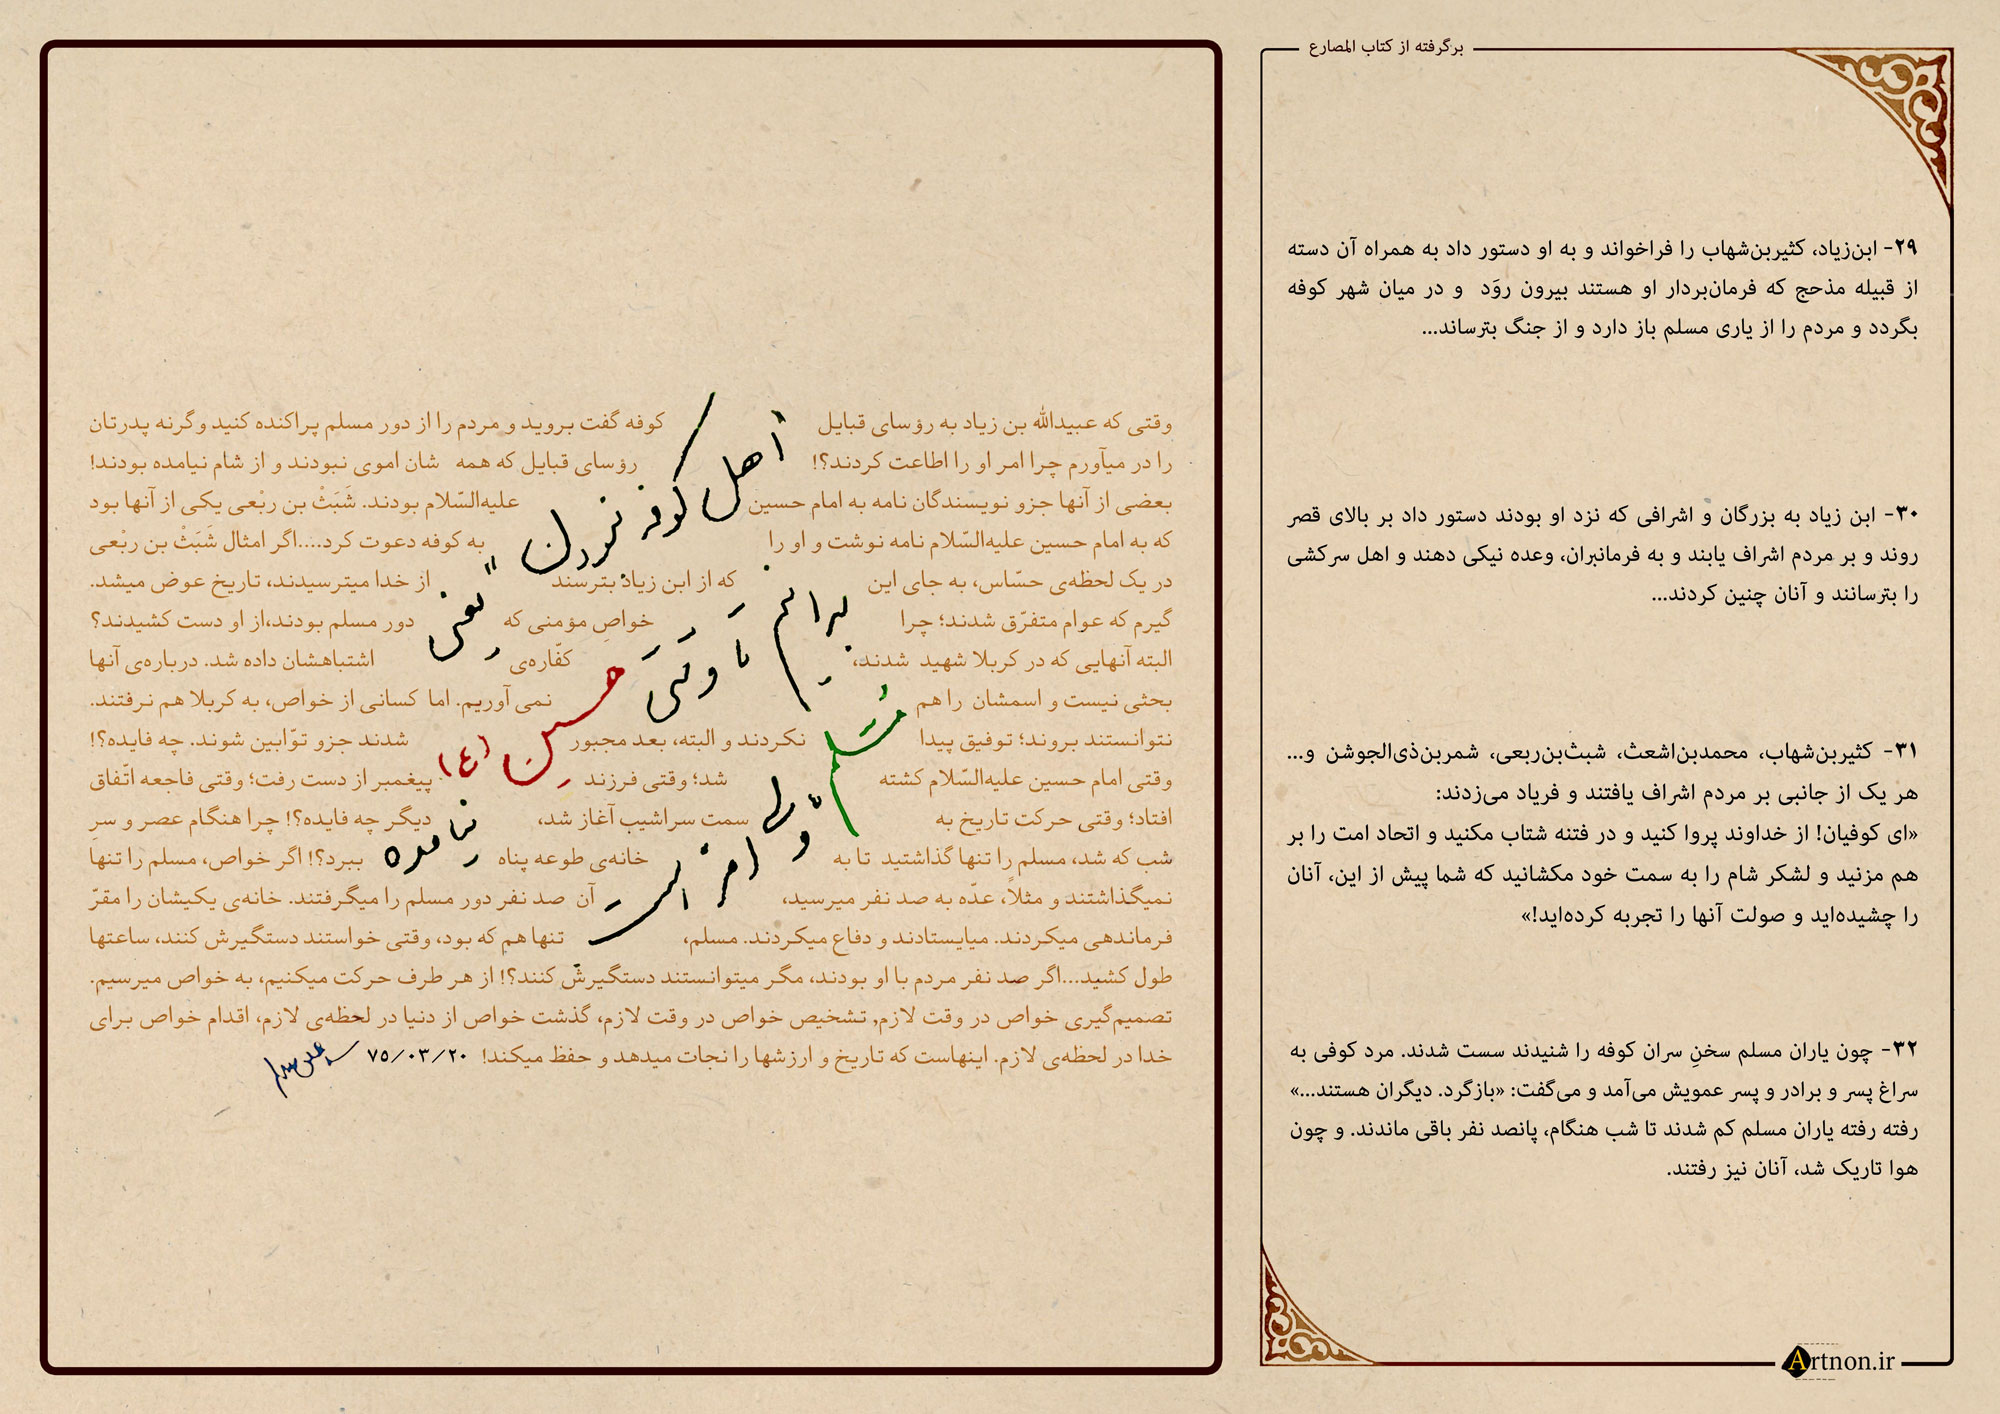 برگرفته از کتاب المصارع
۲۹- ابن‌زیاد، کثیربن‌شهاب را فراخواند و به او دستور داد به همراه آن دسته
از قبیله مذحج که فرمان‌بردار او هستند بیرون روَد و در میان شهر کوفه
بگردد و مردم را از یاری مسلم باز دارد و از جنگ بترساند...
۳۰- ابن زیاد به بزرگان و اشرافی که نزد او بودند دستور داد بر بالای قصر
روند و بر مردم اشراف یابند و به فرمانبران، وعده نیکی دهند و اهل سرکشی
را بترسانند و آنان چنین کردند...
۳۱- کثیربن‌شهاب، محمدبن‌اشعث، شبث‌بن‌ربعی، شمربن‌ذی‌الجوشن و...
هر یک از جانبی بر مردم اشراف یافتند و فریاد می‌زدند:
«ای کوفیان! از خداوند پروا کنید و در فتنه شتاب مکنید و اتحاد امت را بر
هم مزنید و لشکر شام را به سمت خود مکشانید که شما پیش از این، آنان
را چشیده‌اید و صولت آنها را تجربه کرده‌اید!»
۳۲- چون یاران مسلم سخنِ سران کوفه را شنیدند سست شدند. مرد کوفی به
سراغ پسر و برادر و پسر عمویش می‌آمد و می‌گفت: «بازگرد. دیگران هستند...»
رفته رفته یاران مسلم کم شدند تا شب هنگام، پانصد نفر باقی ماندند. و چون
هوا تاریک شد، آنان نیز رفتند.
Artnon.ir
وقتی که عبیدالله بن زیاد به رؤسای قبایل کوفه گفت بروید و مردم را از دور مسلم پراکنده کنید وگرنه پدرتان
را در میآورم چرا امر او را اطاعت کردند؟! رؤسای قبایل که همه شان اموی نبودند و از شام نیامده بودند!
بعضی از آنها جزو نویسندگان نامه به امام حسین علیه‌السّلام بودند. شَبَثْ بن ربْعی یکی از آنها بود
که به امام حسین علیه‌السّلام نامه نوشت و او را به کوفه دعوت کرد....اگر امثال شَبَثْ بن ربْعی
در یک لحظه‌ی حسّاس، به جای این که از ابن زیاد بترسند از خدا میترسیدند، تاریخ عوض میشد.
گیرم که عوام متفرّق شدند؛ چرا خواصِ مؤمنی که دور مسلم بودند،از او دست کشیدند؟
البته آنهایی که در کربلا شهید شدند، کفّاره‌ی اشتباهشان داده شد. درباره‌ی آنها
بحثی نیست و اسمشان را هم نمی آوریم. اما کسانی از خواص، به کربلا هم نرفتند.
نتوانستند بروند؛ توفیق پیدا نکردند و البته، بعد مجبور شدند جزو توّابین شوند. چه فایده؟!
وقتی امام حسین علیه‌السّلام کشته شد؛ وقتی فرزند پیغمبر از دست رفت؛ وقتی فاجعه اتّفاق
افتاد؛ وقتی حرکت تاریخ به سمت سراشیب آغاز شد، دیگر چه فایده؟! چرا هنگام عصر و سر
شب که شد، مسلم را تنها گذاشتید تا به خانه‌ی طوعه پناه ببرد؟! اگر خواص، مسلم را تنها
نمیگذاشتند و مثلاً، عدّه به صد نفر میرسید، آن صد نفر دور مسلم را میگرفتند. خانه‌ی یکیشان را مقرّ
فرماندهی میکردند. میایستادند و دفاع میکردند. مسلم، تنها هم که بود، وقتی خواستند دستگیرش کنند، ساعتها
طول کشید...اگر صد نفر مردم با او بودند، مگر میتوانستند دستگیرش کنند؟! از هر طرف حرکت میکنیم، به خواص میرسیم.
تصمیم‌گیری خواص در وقت لازم, تشخیص خواص در وقت لازم، گذشت خواص از دنیا در لحظه‌ی لازم، اقدام خواص برای
خدا در لحظه‌ی لازم. اینهاست که تاریخ و ارزشها را نجات میدهد و حفظ میکند! ۷۵/۰۳/۲۰
اهل کوفه نبودن " یعنی
بدانیم تا وقتی حسین (ع) نیامده
مسلم ولی امر است